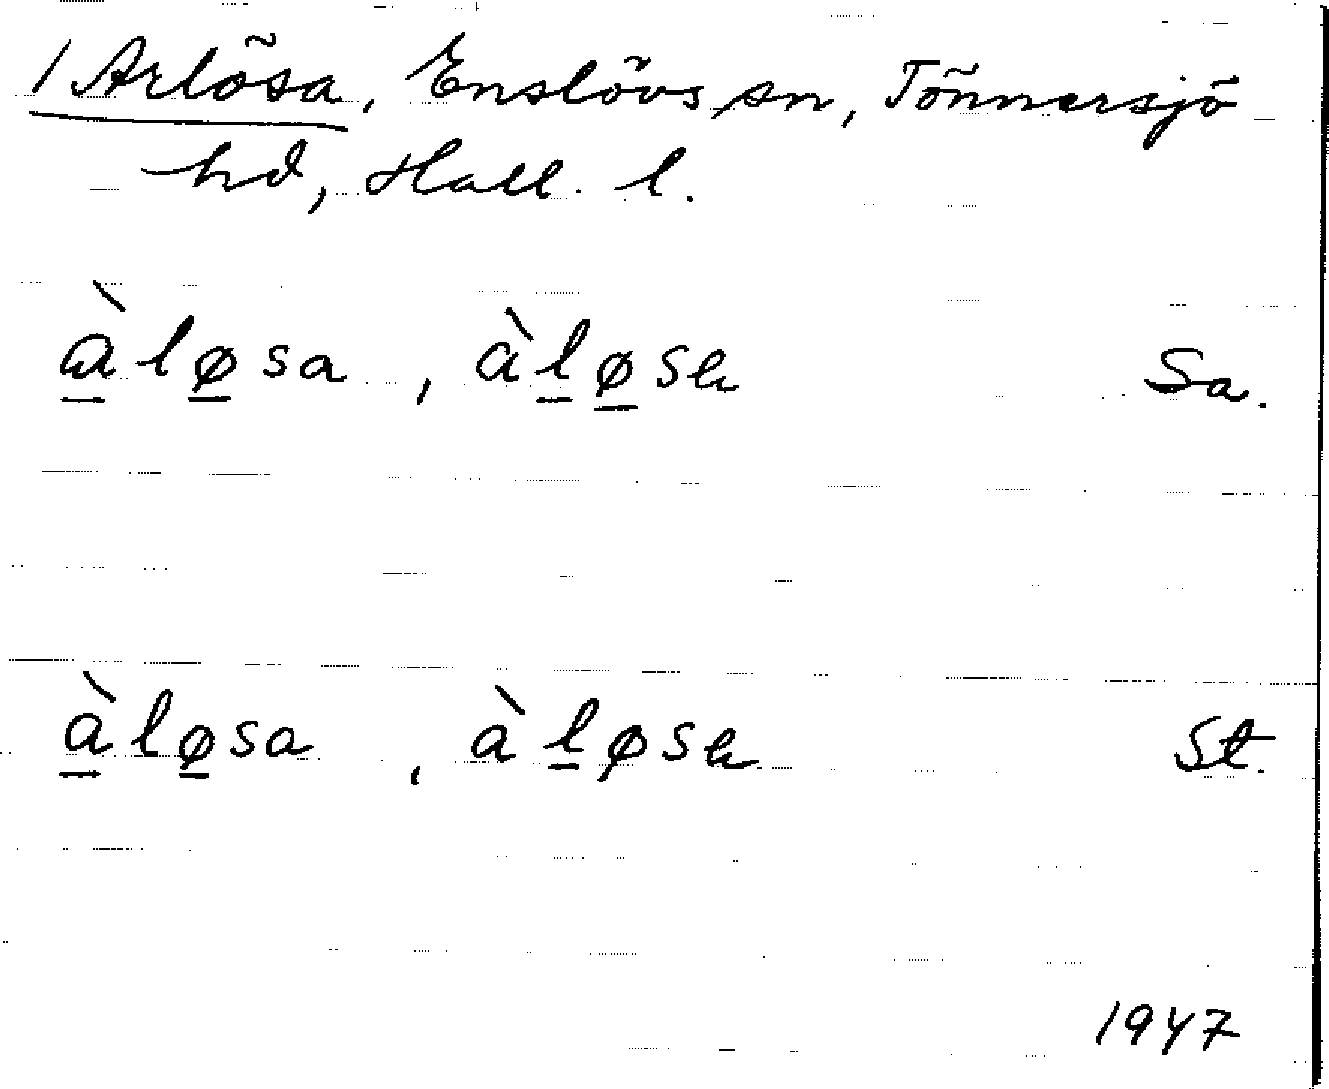 / Arlösa, Enslövs sn, Tönnersjö
hd, Hall. l.
àløsa, àløsa Sa.
àløsa, àløsa St.
1947